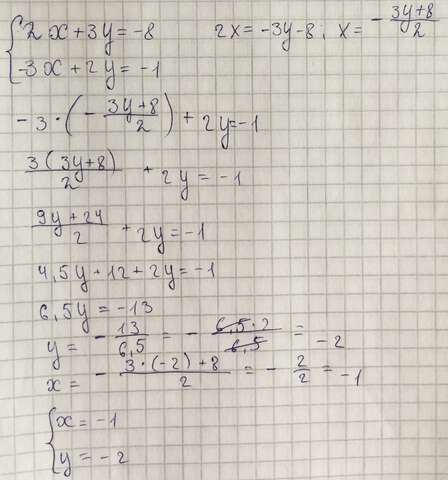 {2x+3y=-8 2x=-3y-8, x= -(3y+8)/2
{-3x+2y=-1
-3·(-(3y+8)/2)+2y=-1
3(3y+8)/2 +2y=-1
(9y+24)/2 +2y=-1
4,5y+12+2y=-1
6,5y=-13
y= -13/6,5 = -(6,5·2)/6,5 = -2
x= -(3·(-2)+8)/2 = -2/2 = -1
{x=-1
{y=-2